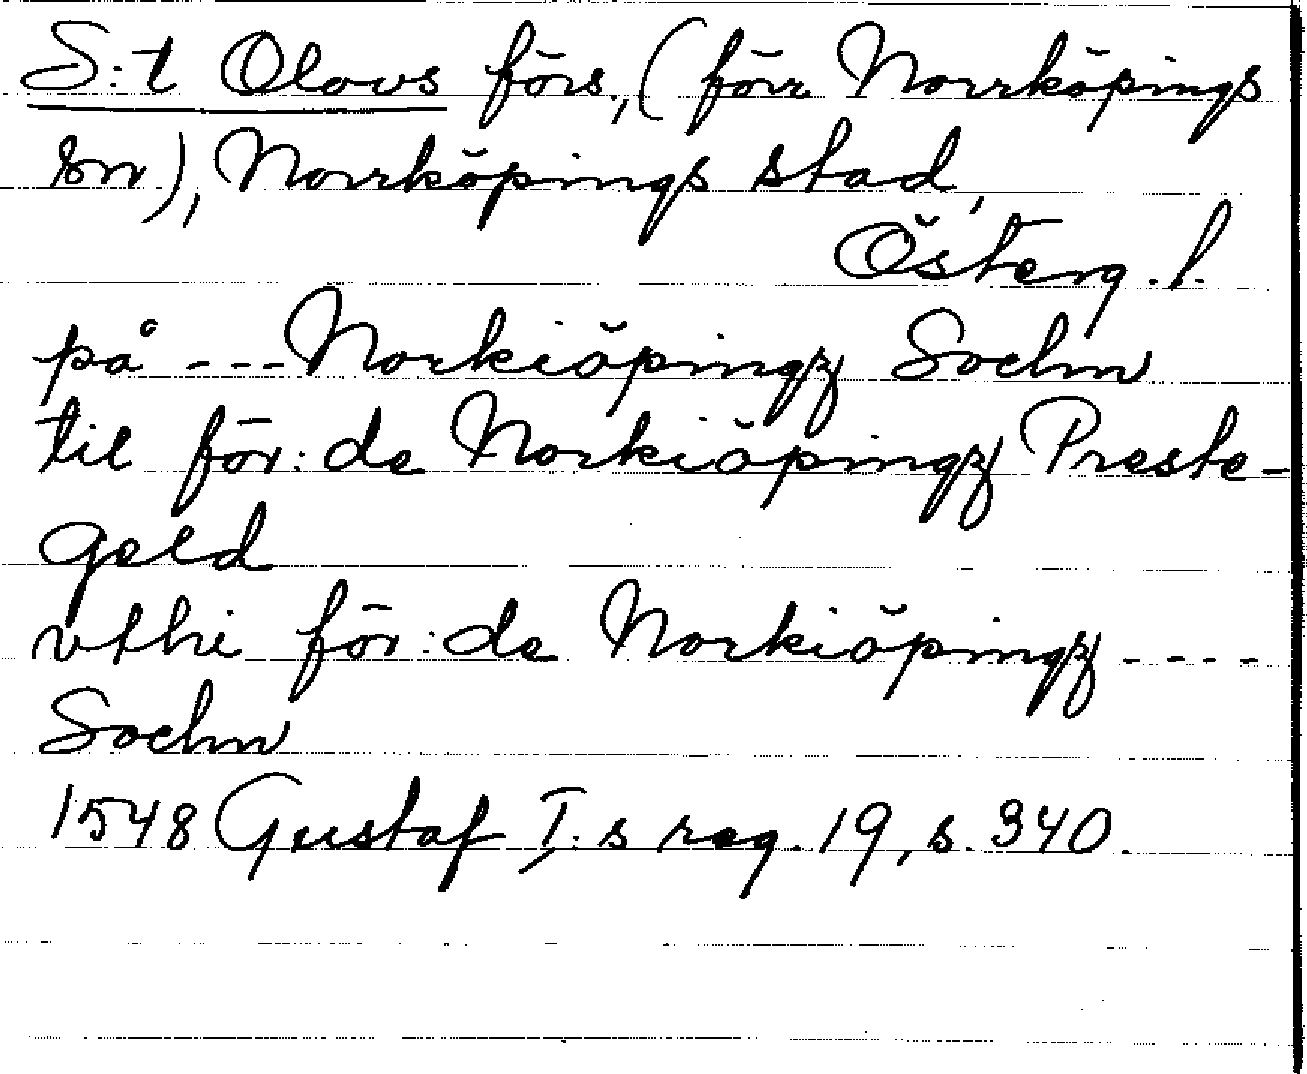 S:t Olovs förs., (förr Norrköpings
sn), Norrköpings stad,
Österg.l.
på --- Norkiöpingz Sochn
til för:de Norkiöpingz Preste-
geld
vthi för:de Norkiöpingz ----
Sochn
1548 Gustaf I:s reg. 19, s. 340.